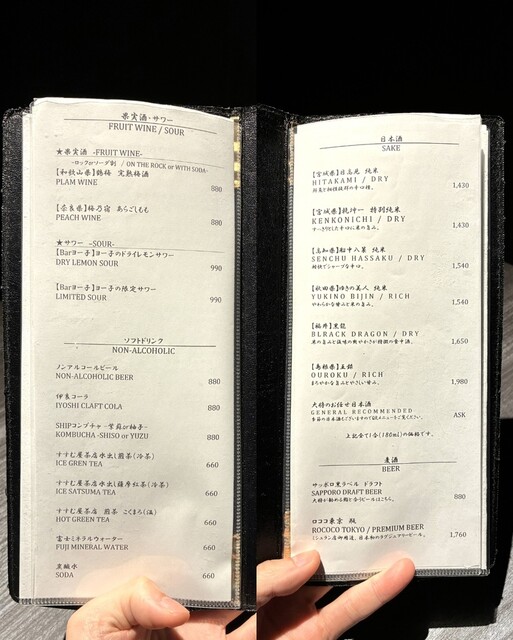 果実酒・サワー
FRUIT WINE / SOUR
★果実酒 -FRUIT WINE-
-ロックorソーダ割 / ON THE ROCK or WITH SODA-
【和歌山県】鶴梅 完熟梅酒
PLAM WINE 880
【奈良県】梅乃宿 あらごしもも
PEACH WINE 880
★サワー -SOUR-
【Barヨー子】ヨー子のドライレモンサワー
DRY LEMON SOUR 990
【Barヨー子】ヨー子の限定サワー
LIMITED SOUR 990
ソフトドリンク
NON-ALCOHOLIC
ノンアルコールビール
NON-ALCOHOLIC BEER 880
伊良コーラ
IYOSHI CLAFT COLA 880
SHIPコンブチャ -紫蘇or柚子-
KOMBUCHA -SHISO or YUZU 880
すすむ屋茶店水出し煎茶(冷茶)
ICE GREN TEA 660
すすむ屋茶店水出し薩摩紅茶(冷茶)
ICE SATSUMA TEA 660
すすむ屋茶店 煎茶 こくまろ(温)
HOT GREEN TEA 660
富士ミネラルウォーター
FUJI MINERAL WATER 660
炭酸水
SODA 660
日本酒
SAKE
【宮城県】日高見 純米
HITAKAMI / DRY 1,430
魚介と相性抜群の辛口酒。
【宮城県】乾坤一 特別純米
KENKONICHI / DRY 1,430
すっきりとした辛口に米の旨み。
【高知県】船中八策 純米
SENCHU HASSAKU / DRY 1,540
軽快でシャープな辛口。
【秋田県】ゆきの美人 純米
YUKINO BIJIN / RICH 1,540
やわらかな米の旨み。
【福井】黒龍
BLRACK DRAGON / DRY 1,650
米の旨みと後味の爽やかさが特徴の食中酒。
【島根県】王祿
OUROKU / RICH 1,980
まろやかな旨みとやさしい甘み。
大将のお任せ日本酒
GENERAL RECOMMENDED ASK
季節の日本酒もございますのでQRメニューをご覧ください。
上記全て1合(180ml)の価格です。
麦酒
BEER
サッポロ黒ラベル ドラフト
SAPPORO DRAFT BEER 880
大将が勧める鮨と合うビールはこちら。
ロココ東京 瓶
ROCOCO TOKYO / PREMIUM BEER 1,760
ミシュラン店御用達。日本初のラグジュアリービール。